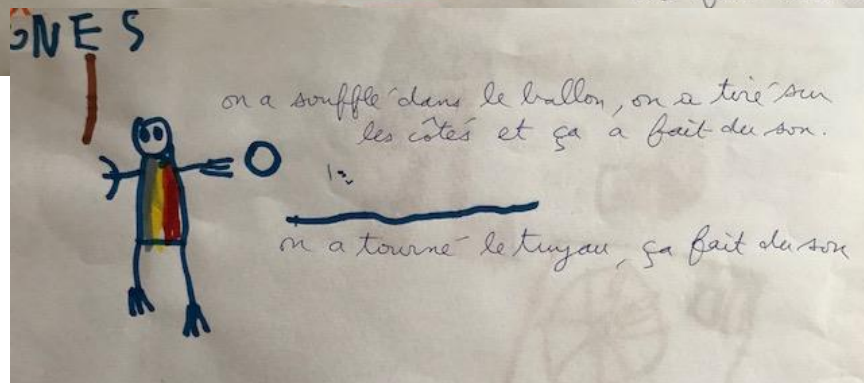 GNES
on a soufflé dans le ballon, on a tiré sur
les côtés et ça a fait du son.
on a tourné le tuyau, ça fait du son